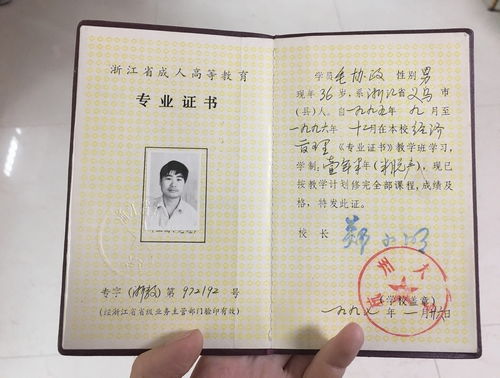 浙江省成人高等教育
专业证书
专字(浙教)第 972192 号
(经浙江省省级业务主管部门验印有效)
学员毛协政 性别男
现年36岁,系浙江省义乌市
(县)人。自一九九五年九月至
一九九六年十二月在本校经济
管理《专业证书》教学班学习,
学制:壹年半年(半脱产),现已
按教学计划修完全部课程,成绩及
格,特发此证。
校长 郑小明
(学校盖章)
一九九七年一月廿六日